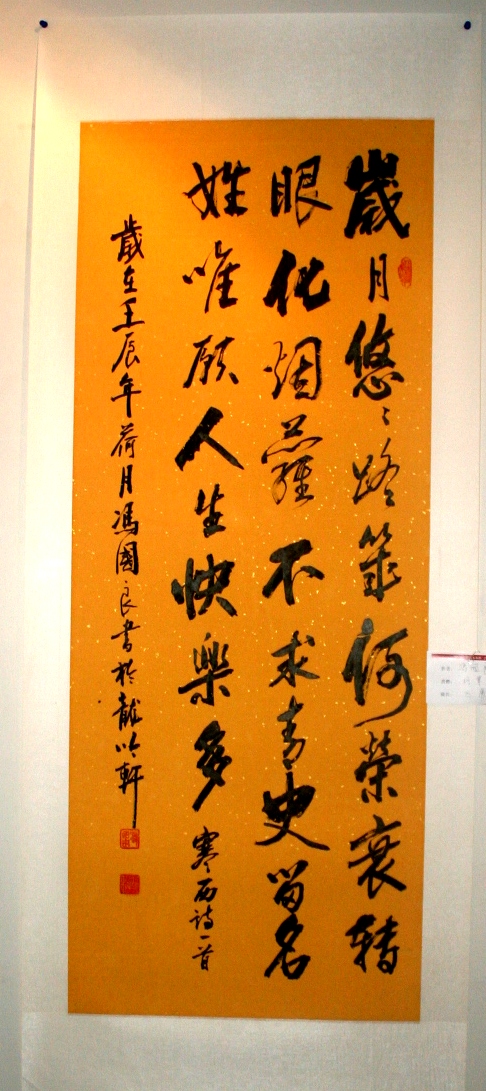 歲月悠々路幾何榮衰轉
眼化烟蘿不求青史留名
姓唯願人生快樂多
寒西詩一首
歲在壬辰年荷月馮國良書於龍吟軒